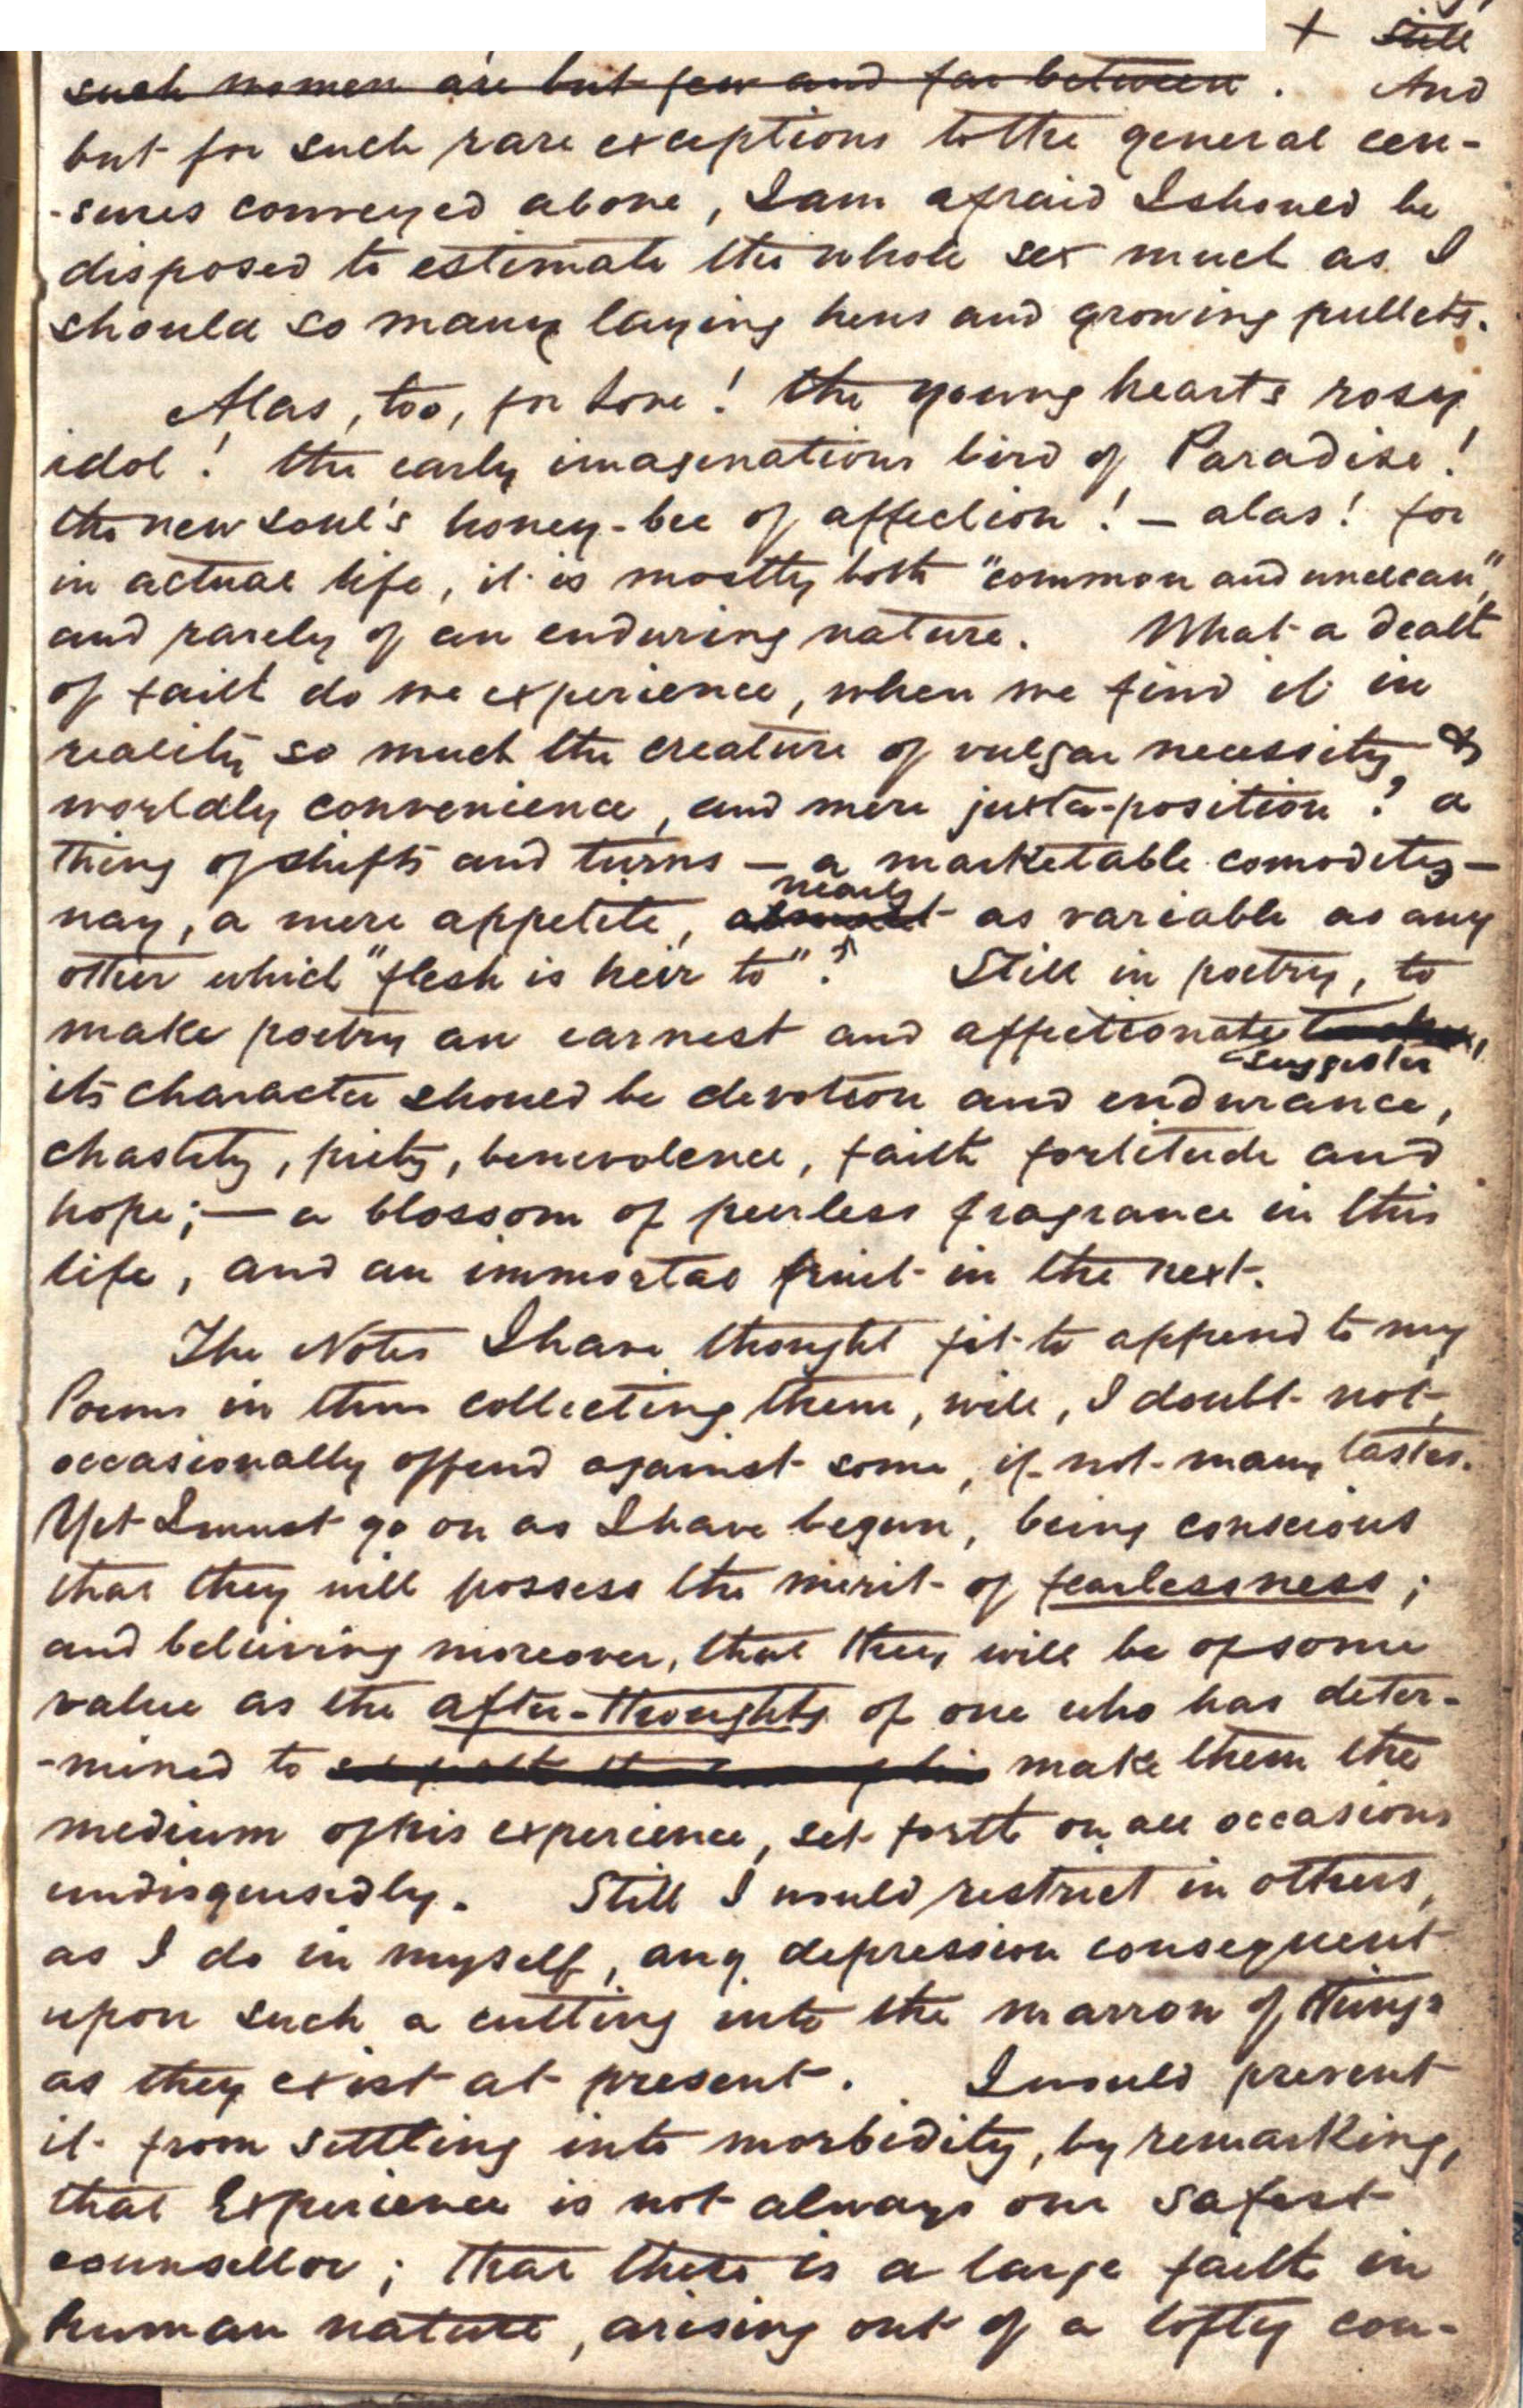 + still
such women are but few and far between. And
but for such rare exceptions to the general cen-
-sures conveyed above, I am afraid I should be
disposed to estimate the whole sex much as I
should so many laying hens and growing pullets.
Alas, too, for Love! the young heart's rosy
idol! the early imaginations bird of Paradise!
the new soul's honey-bee of affection! — alas! for
in actual life, it is mostly both "common and unclean",
and rarely of an enduring nature. What a dealt
of faith do we experience, when we find it in
reality so much the creature of vulgar necessity &
worldly convenience, and mere juxta-position? a
thing of shifts and turns — a marketable comodity —
nearly
nay, a mere appetite, almost as variable as any
other which "flesh is heir to"? Still in poetry, to
make poetry an earnest and affectionate
suggester
its character should be devotion and endurance,
chastity, piety, benevolence, faith fortitude and
hope; — a blossom of peerless fragrance in this
life, and an immortal fruit in the next.
The Notes I have thought fit to append to my
Poems in thus collecting them, will, I doubt not,
occasionally offend against some, if not many tastes.
Yet I must go on as I have begun, being conscious
that they will possess the merit of fearlessness;
and believing moreover, that they will be of some
value as the after-thoughts of one who has deter-
-mined to make them the
medium of his experience, set forth on all occasions
undisguisedly. Still I would restrict in others,
as I do in myself, any depression consequent
upon such a cutting into the marrow of things
as they exist at present. I would prevent
it from settling into morbidity, by remarking,
that Experience is not always our safest
counsellor; that there is a large faith in
human nature, arising out of a lofty con-